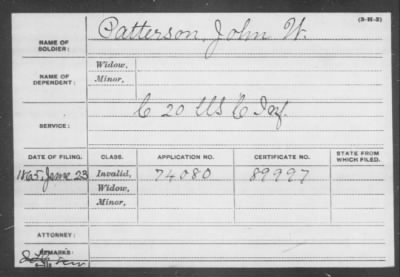 (3-H-2)
NAME OF SOLDIER: Patterson, John W.
NAME OF DEPENDENT: Widow,
Minor,
SERVICE: C 20 US C Inf.
DATE OF FILING. CLASS. APPLICATION NO. CERTIFICATE NO. STATE FROM WHICH FILED.
1865, June 23 Invalid, 74080 89997
Widow,
Minor,
ATTORNEY:
REMARKS: